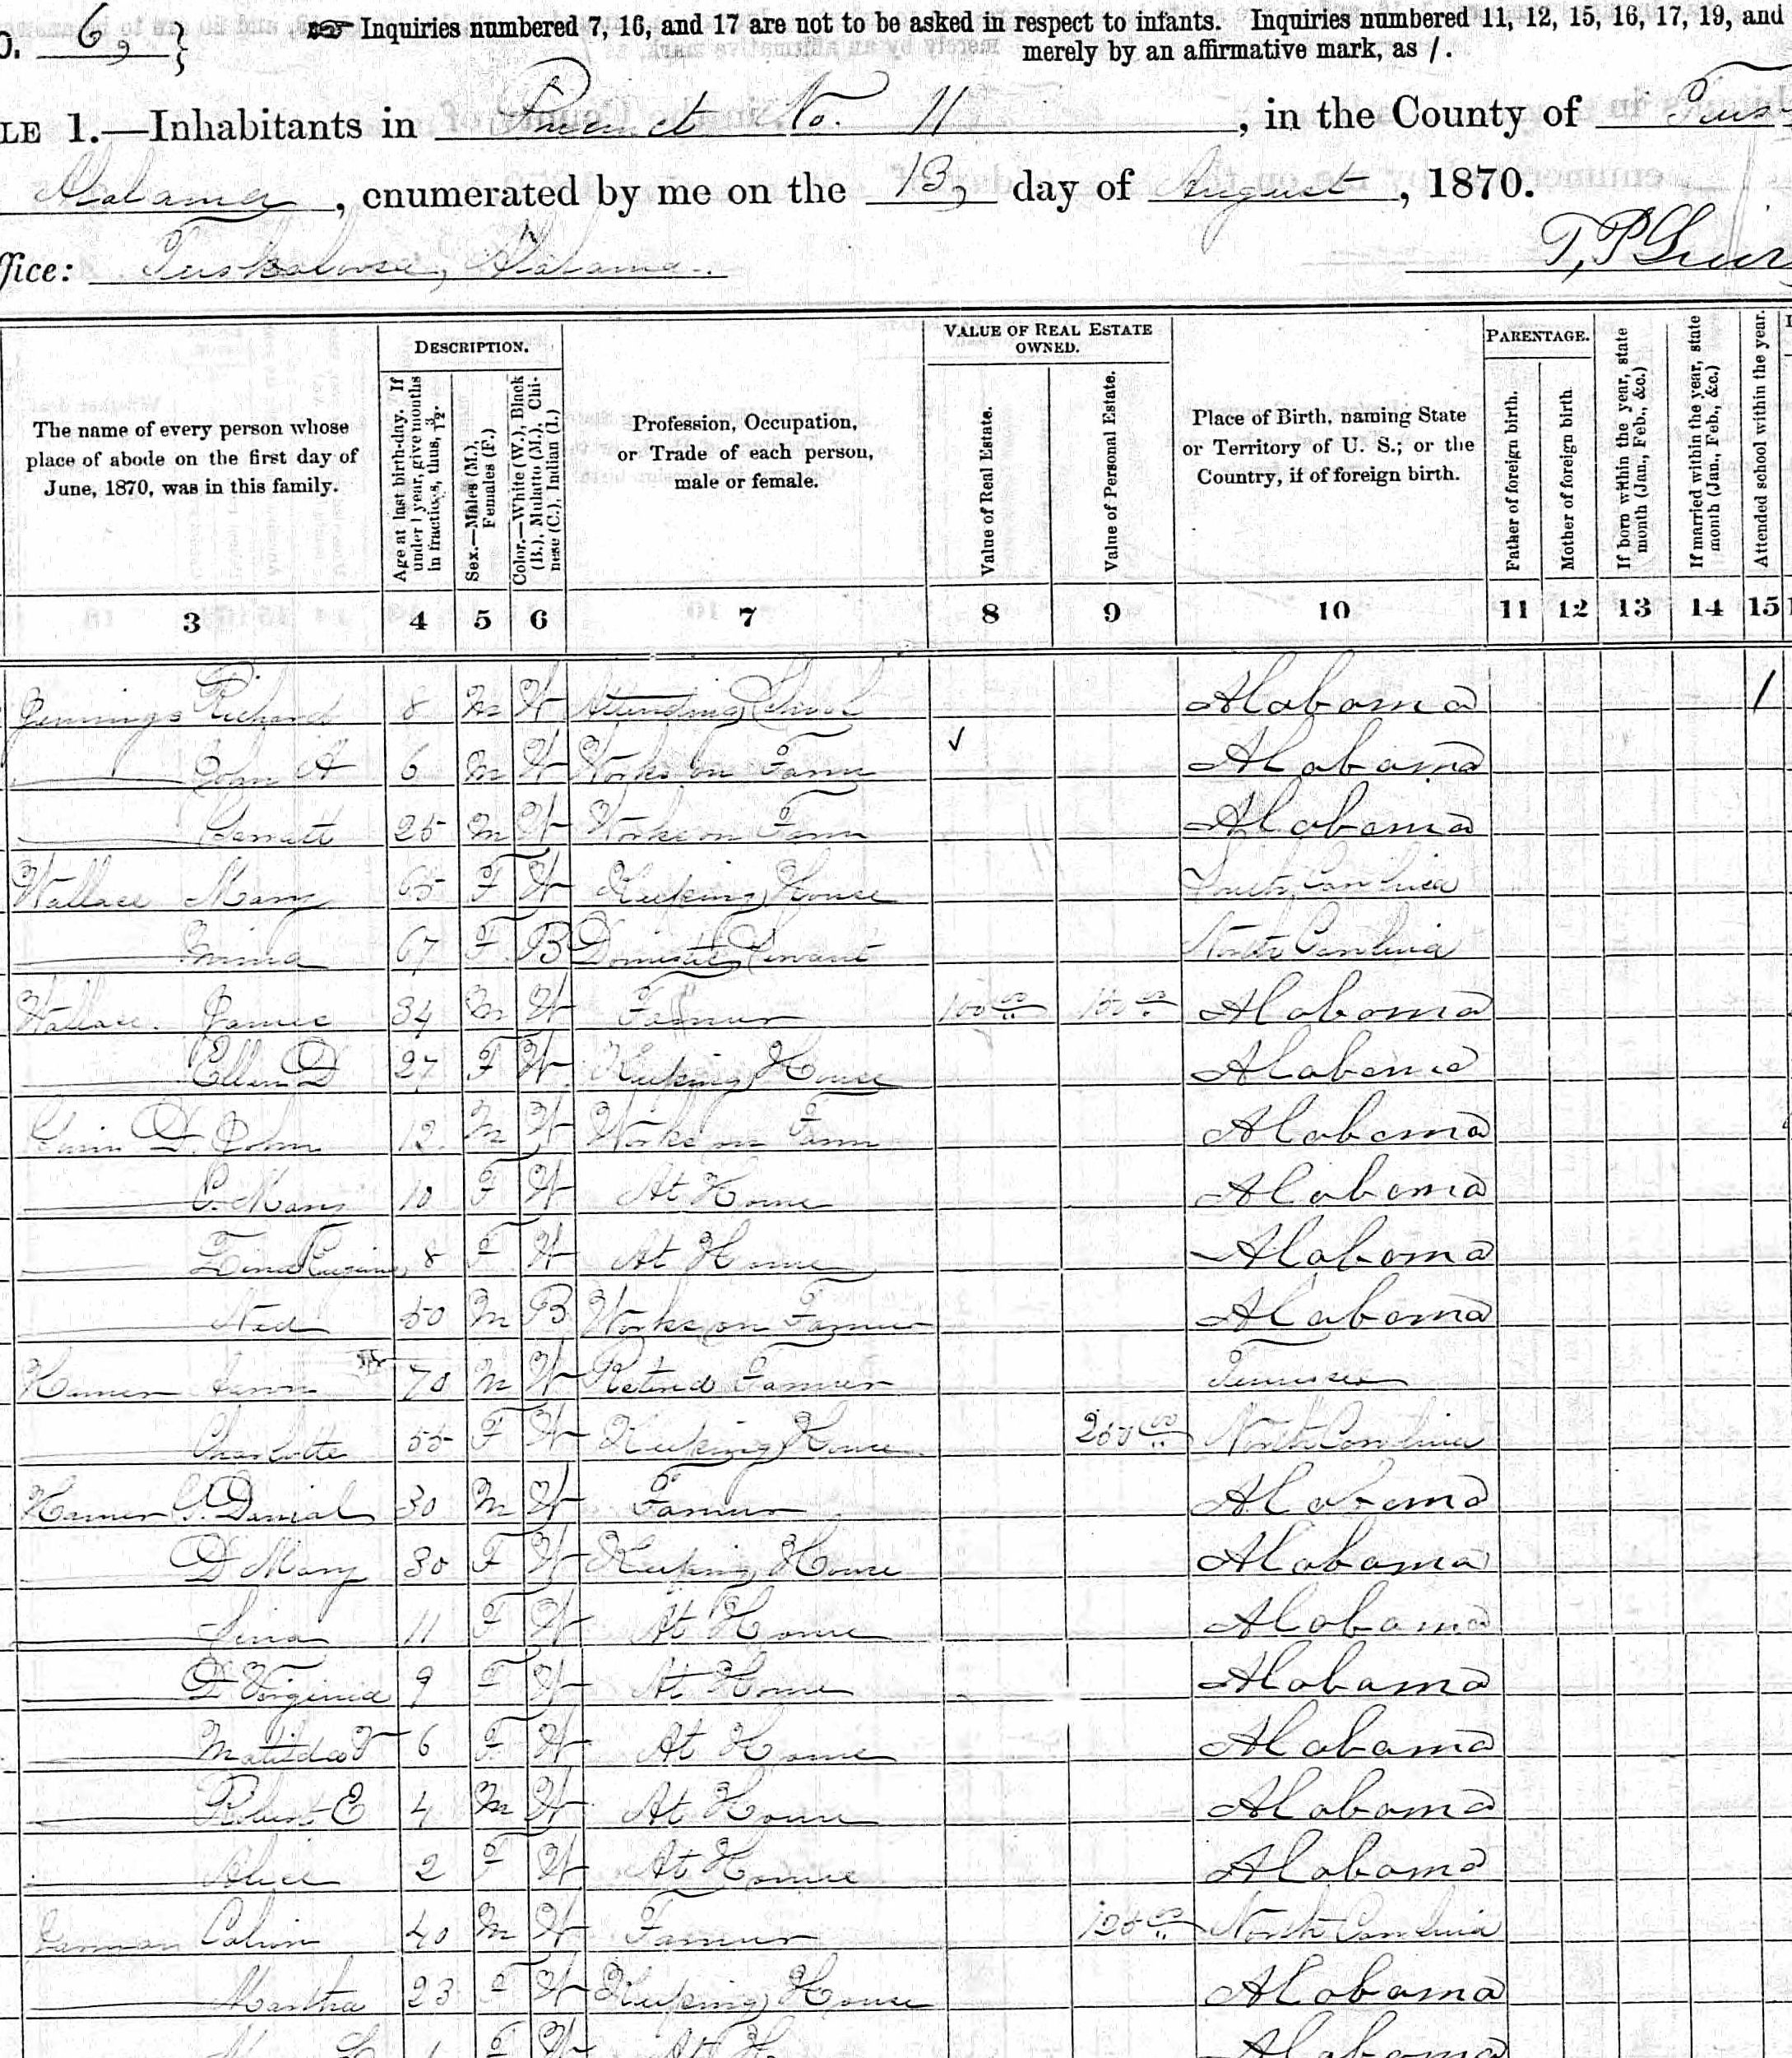 6,
Inquiries numbered 7, 16, and 17 are not to be asked in respect to infants. Inquiries numbered 11, 12, 15, 16, 17, 19, and
merely by an affirmative mark, as /.
LE 1.—Inhabitants in Precinct No. 11, in the County of Tus
Alabama, enumerated by me on the 13, day of August, 1870.
ffice: Tuskaloosa, Alabama.
T, P
DESCRIPTION.
VALUE OF REAL ESTATE OWNED.
PARENTAGE.
The name of every person whose place of abode on the first day of June, 1870, was in this family.
Age at last birth-day. If under 1 year, give months in fractions, thus, 3/12.
Sex.—Males (M.), Females (F.)
Color.—White (W.), Black (B.), Mulatto (M.), Chinese (C.), Indian (I.)
Profession, Occupation, or Trade of each person, male or female.
Value of Real Estate.
Value of Personal Estate.
Place of Birth, naming State or Territory of U. S.; or the Country, if of foreign birth.
Father of foreign birth.
Mother of foreign birth
If born within the year, state month (Jan., Feb., &c.)
If married within the year, state month (Jan., Feb., &c.)
Attended school within the year.
3 4 5 6 7 8 9 10 11 12 13 14 15
Jennings Richard 8 M W Attending School Alabama /
John A 6 M W Works on Farm Alabama
Garrett 25 M W Works on Farm Alabama
Wallace Mary 65 F W Keeping House South Carolina
67 F B Domestic Servant North Carolina
Wallace James 34 M W Farmer 100 00 Alabama
Ellen D 27 F W Keeping House Alabama
D. John 12 M W Works on Farm Alabama
C. Mary 10 F W At Home Alabama
8 F W At Home Alabama
Ned 50 M B Works on Farm Alabama
Hamner 70 M W Retired Farmer Tennessee
Charlotte 55 F W Keeping House 250 00 North Carolina
Hamner G. Danial 30 M W Farmer Alabama
D Mary 30 F W Keeping House Alabama
11 F W At Home Alabama
D Virginia 9 F W At Home Alabama
Matilda F 6 F W At Home Alabama
Robert E 4 M W At Home Alabama
Alice 2 F W At Home Alabama
Calvin 40 M W Farmer 125 00 North Carolina
Martha 23 F W Keeping House Alabama
F W At Alabama